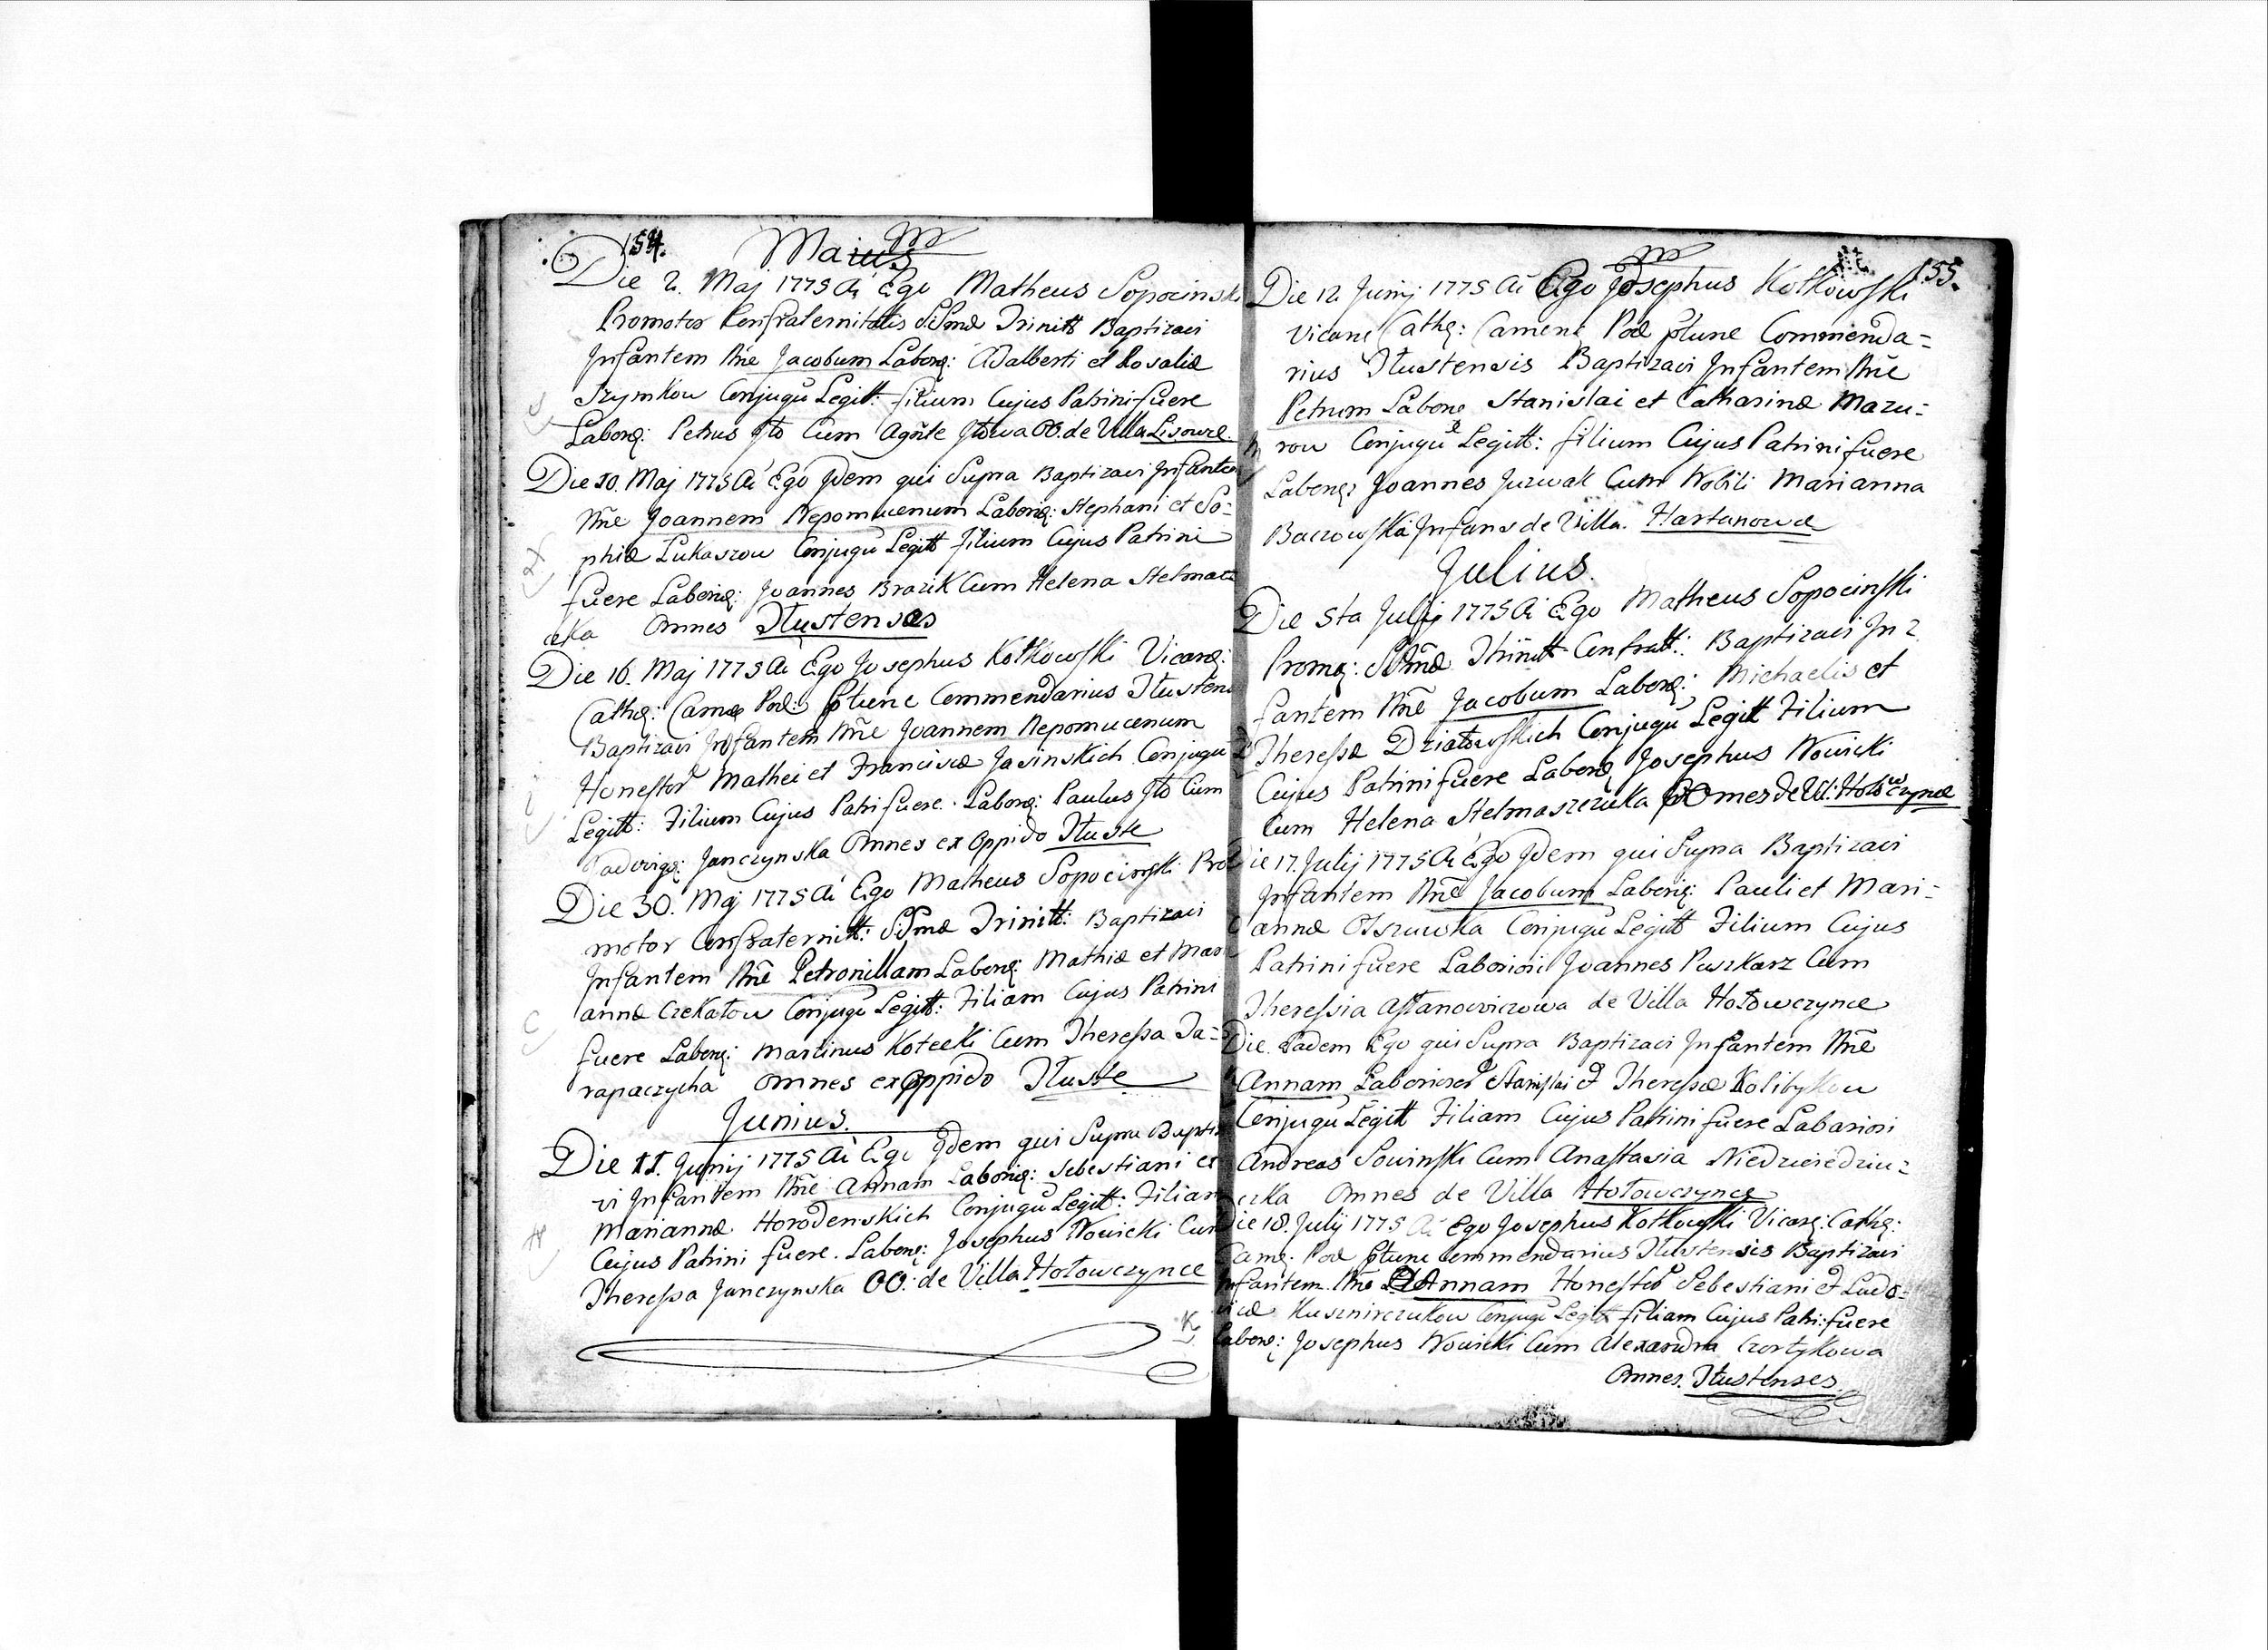 154.
Maius
Die 2. Maj 1775 Ai Ego Matheus Sopocinski
Promotor Confraternitatis SSmæ Trinitt Baptizavi
Infantem Nñe Jacobum Laborq: Adalberti et Rosaliæ
Szymkow Conjugũ Legitt: filium Cujus Patrini fuere
Laborq: Petrus Jto Cum Agñte Jtowa OO. de Villa Lisowce.
Die 10. Maj 1775 Ai Ego Jdem qui Supra Baptizavi Infantem
Nñe Joannem Nepomucenum Laborq: Stephani et So-
phiæ Lukaszow Conjugũ Legitt filium Cujus Patrini
fuere Laborq: Joannes Brazik Cum Helena Stelmasz
czka Omnes Tłustenses
Die 16. Maj 1775 Ai Ego Josephus Kotkowski Vicarq:
Cathq: Camæ Pod: ptunc Commendarius Tłustens
Baptizavi Infantem Nñe Joannem Nepomucenum
Honestor Mathei et Franciscæ Jasinskich Conjugũ
Legitt: Filium Cujus Patri fuere Laborq: Paulus Jto Cum
Hadwigq: Janczynska Omnes ex Oppido Tłuste
Die 30. Maj 1775 Ai Ego Matheus Sopocinski Pro
motor Confraternitt: SSmæ Trinitt: Baptizavi
Infantem Nñe Petronillam Laborq: Mathiæ et Mari
annæ Czekałow Conjugũ Legitt: Filiam Cujus Patrini
fuere Laborq: Martinus Kotecki Cum Theressa Ta-
rapaczycha Omnes ex Oppido Tłuste
Junius.
Die 11. Junij 1775 Ai Ego Jdem qui Supra Baptiza
vi Infantem Nñe Annam Laborq: Sebestiani et
Mariannæ Horodenskich Conjugũ Legitt: Filiam
Cujus Patrini fuere Laborq: Josephus Nowicki Cum
Theressa Janczynska OO: de Villa Hołowczynce
155.
Die 12 Junij 1775 Ai Ego Josephus Kotkowski
Vicari Cathq: Camene Pod ptunc Commenda-
rius Tłustensis Baptizavi Infantem Nñe
Petrum Labore Stanislai et Catharinæ Mazu-
row Conjugũ Legitt: filium Cujus Patrini fuere
Laborq: Joannes Jurwak Cum Nobili Marianna
Baczowska Infans de Villa Hartanowce
Julius.
Die 5ta Julij 1775 Ai Ego Matheus Sopocinski
Promq: SSmæ Trinitt Confratt: Baptizavi In-
fantem Nñe Jacobum Laborq: Michaelis et
Theressæ Działowskich Conjugũ Legitt Filium
Cujus Patrini fuere Laborq Josephus Nowicki
Cum Helena Stelmaszczuka Omes de Vil: Hołowczynce
Die 17. Julij 1775 Ai Ego Jdem qui Supra Baptizavi
Infantem Nñe Jacobum Laborq: Pauli et Mari-
annæ Olszuwka Conjugũ Legitt Filium Cujus
Patrini fuere Laboriosi Joannes Puszkarz Cum
Theressia Astanowiczowa de Villa Hołowczynce
Die Eadem Ego qui Supra Baptizavi Infantem Nñe
Annam Laboriosor Stanislai et Theressæ Kolibyskow
Conjugũ Legitt Filiam Cujus Patrini fuere Labariosi
Andreas Sowinski Cum Anastasia Niedzwiedziu-
czka Omnes de Villa Hołowczynce
Die 18. Julij 1775 Ai Ego Josephus Kotkowski Vicarq: Cathq:
Camq: Pod ptunc Commendarius Tłustensis Baptizavi
Infantem Nñe Annam Honestor Sebestiani et Ludo-
vicæ Kusznirczukow Conjugũ Legitt filiam Cujus Patri: fuere
Laborq: Josephus Nowicki Cum Alexandra Czortykowa
Omnes Tłustenses